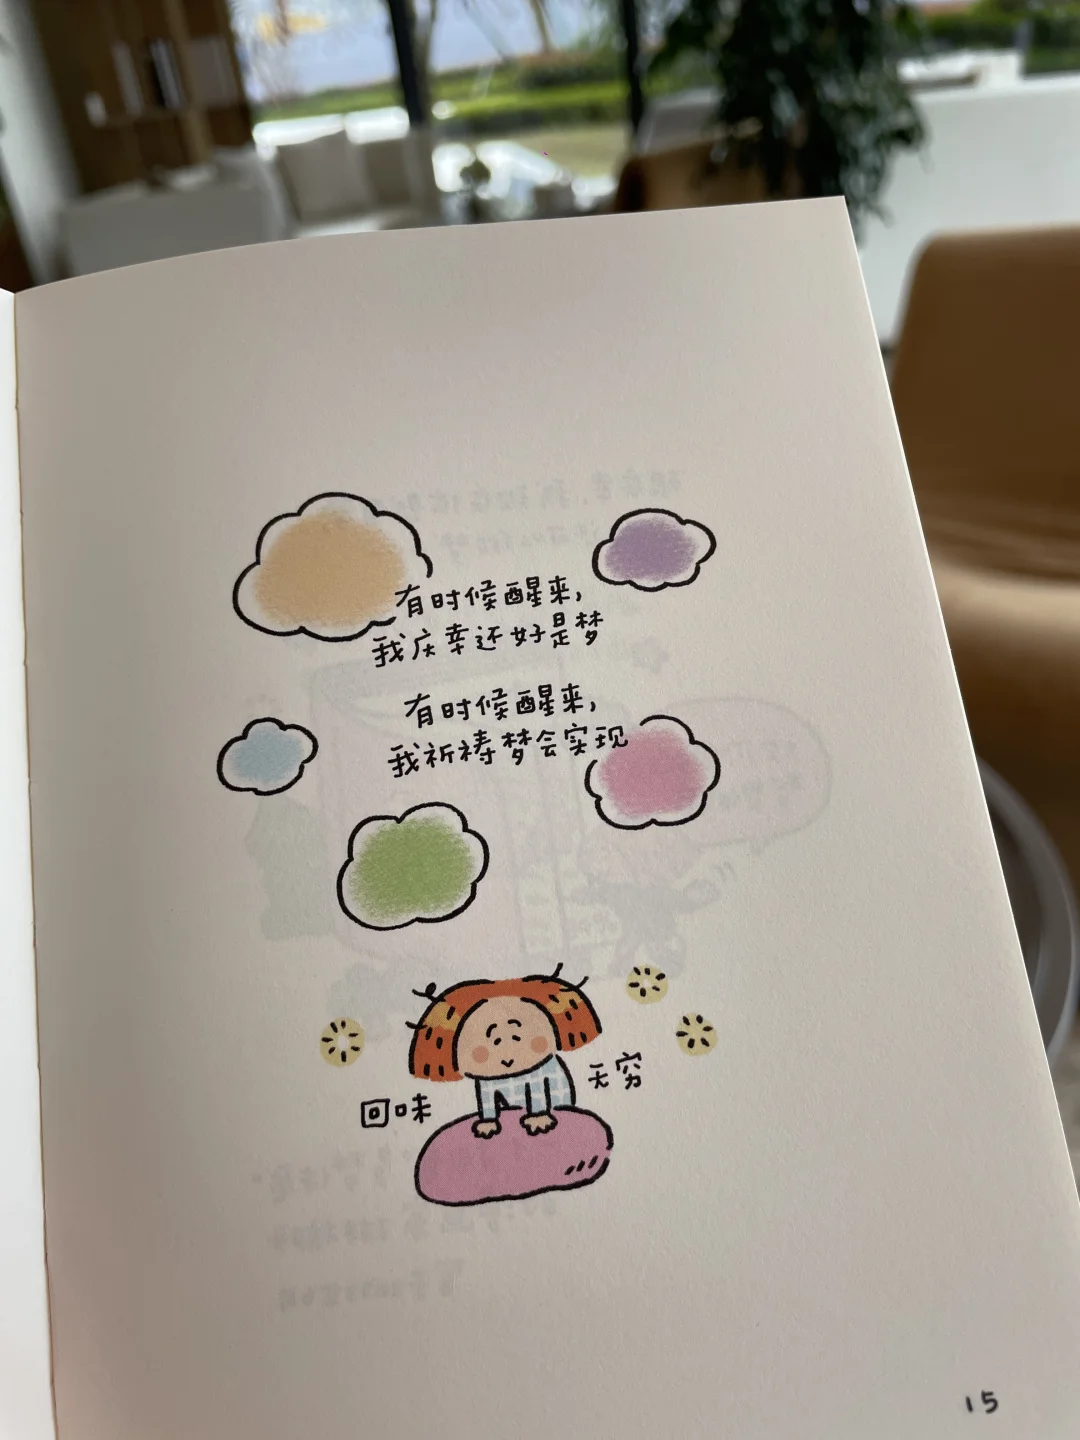 有时候醒来,
我庆幸还好是梦
有时候醒来,
我祈祷梦会实现
回味
无穷
15